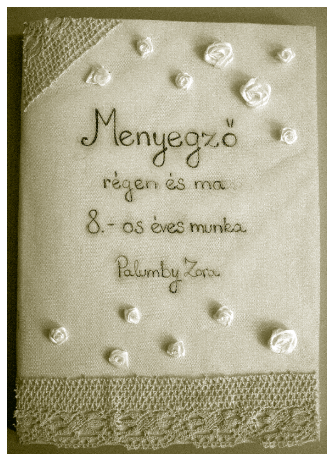 Menyegző
régen és ma
8.- os éves munka
Palumby Zora